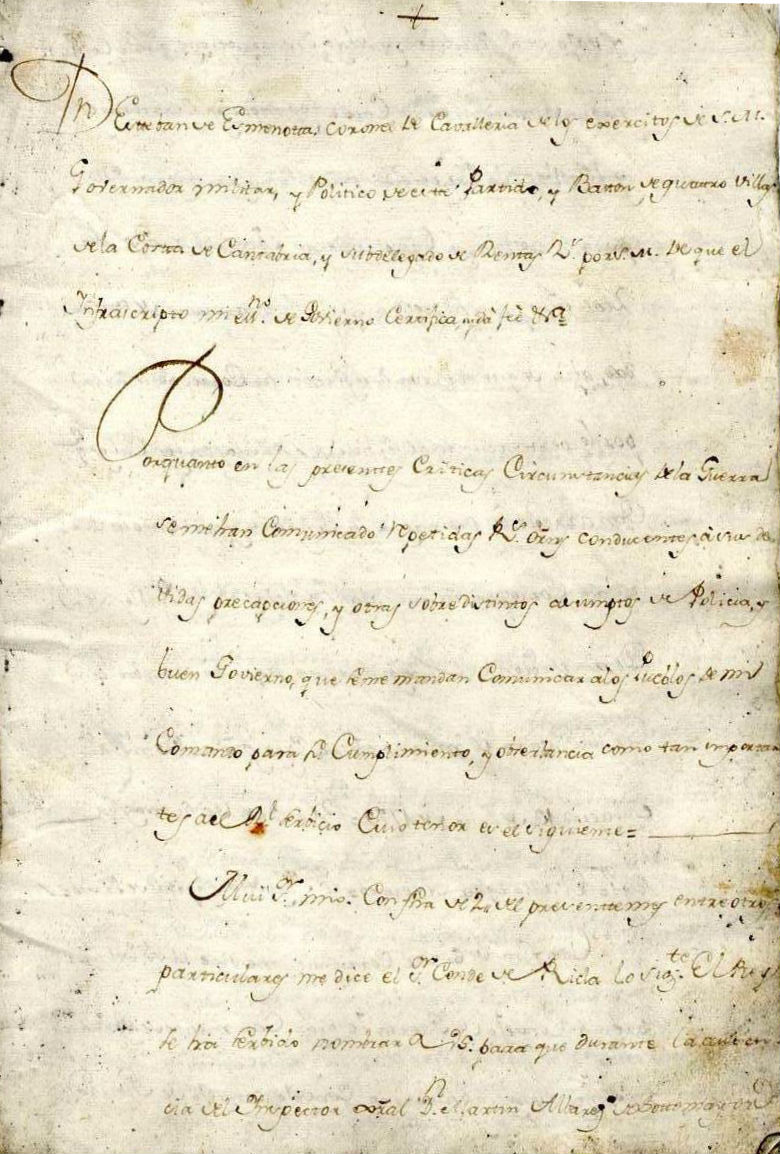 +
Dn Estevan de Esmenota, coronel de Cavalleria de los exercitos de S. M.
Governador militar, y Politico de este Partido, y Baston de quatro Villas
de la Costa de Cantabria, y subdelegado de Rentas Rs. por S. M. de que el
Infrascripto mi essno. de Govierno Certifica, y dà feè &a
Porquanto en las presentes Criticas Circunstancias de la Guerra
se me han Comunicado repetidas Rs. orns conducentes, à sus de
vidas precapciones, y otras sobre distintos asumptos de Policia, y
buen Govierno, que se me mandan Comunicar a los Pueblos de mi
Comando para su Cumplimiento, y observancia como tan importan
tes a el Rl. serbicio Cuio tenor es el siguiente =
Mui Sor. mio. Con fha de 2 del presente mes entre otros
particulares me dice el Sor. Conde de Ricla lo sigte. El Rey
se ha serbido nombrar a VS. para que durante la ausen
cia del Inspector gral Dn. Martin Alvarez de Sotomayor